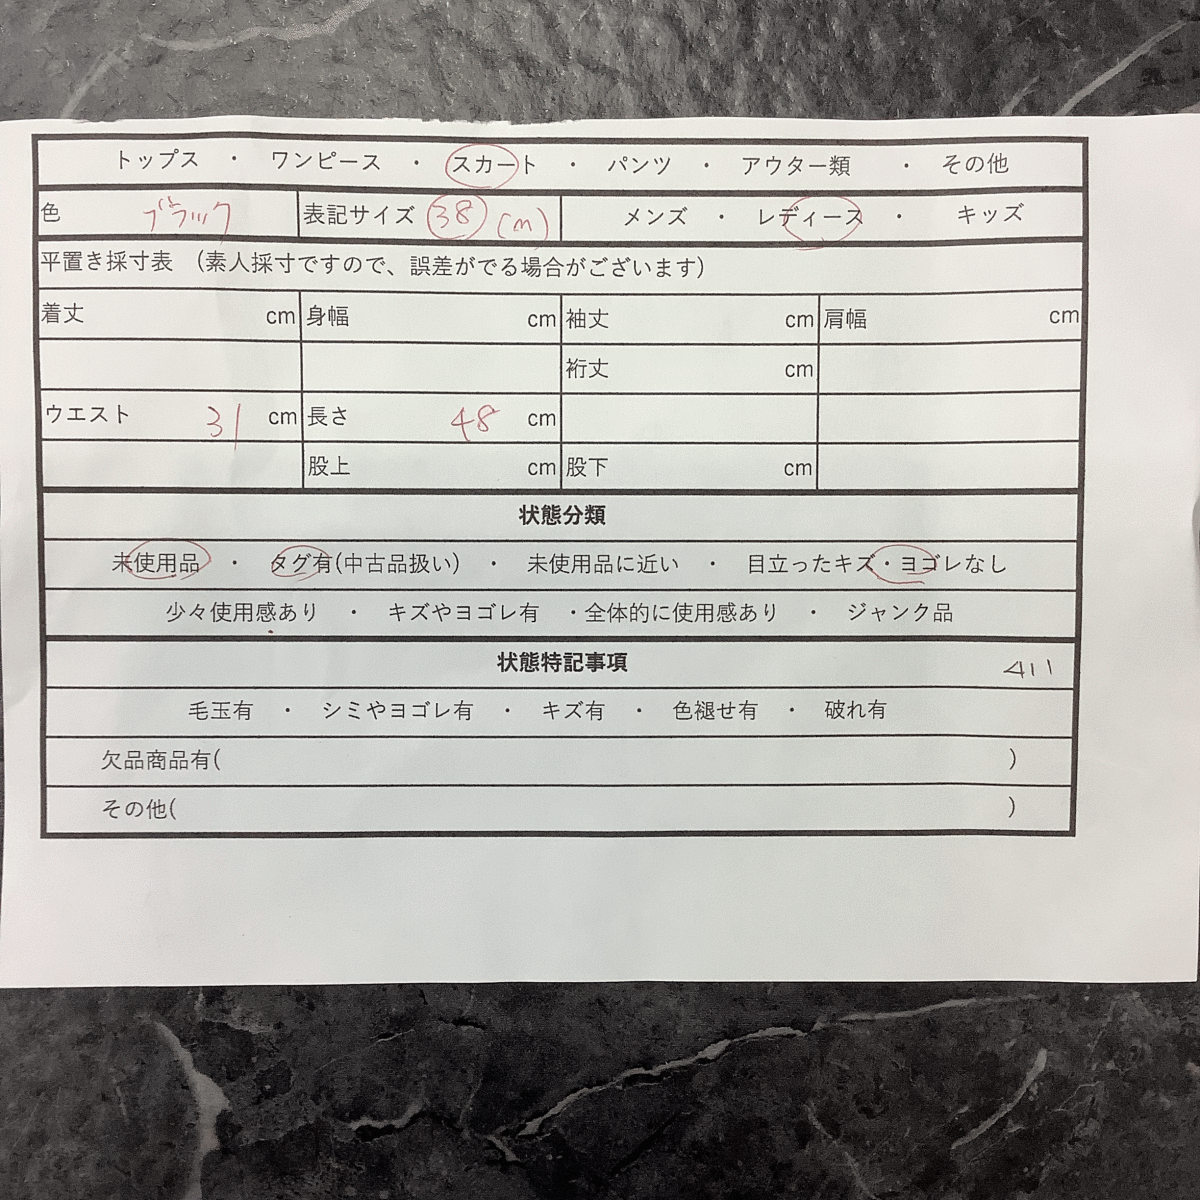 トップス ・ ワンピース ・ スカート ・ パンツ ・ アウター類 ・ その他
色 ブラック 表記サイズ 38 (m) メンズ ・ レディース ・ キッズ
平置き採寸表 (素人採寸ですので、誤差がでる場合がございます)
着丈 cm 身幅 cm 袖丈 cm 肩幅 cm
裄丈 cm
ウエスト 31 cm 長さ 48 cm
股上 cm 股下 cm
状態分類
未使用品 ・ タグ有(中古品扱い) ・ 未使用品に近い ・ 目立ったキズ・ヨゴレなし
少々使用感あり ・ キズやヨゴレ有 ・全体的に使用感あり ・ ジャンク品
状態特記事項 411
毛玉有 ・ シミやヨゴレ有 ・ キズ有 ・ 色褪せ有 ・ 破れ有
欠品商品有( )
その他( )